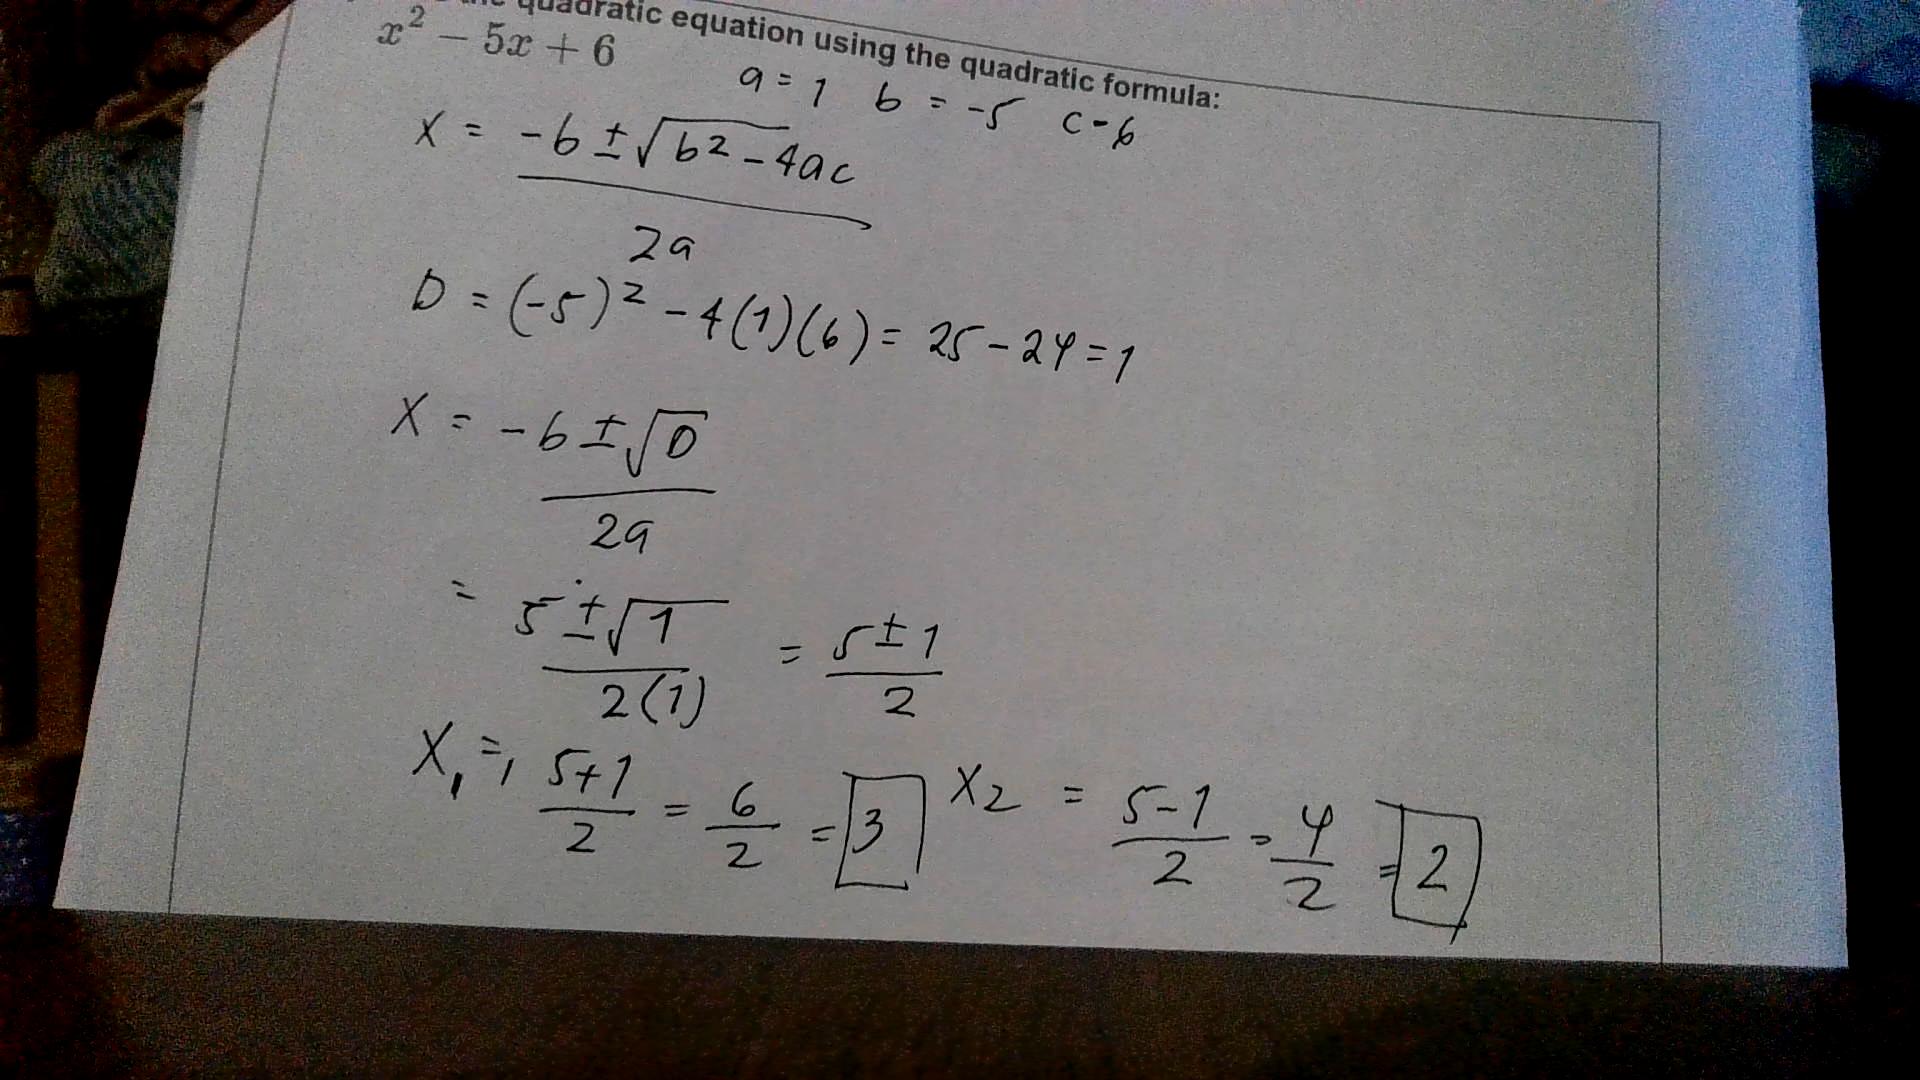 quadratic equation using the quadratic formula:
x² − 5x + 6
a = 1 b = -5 c - 6
x = (-b ± √(b² - 4ac)) / 2a
D = (-5)² - 4(1)(6) = 25 - 24 = 1
x = (-b ± √D) / 2a
= (5 ± √1) / 2(1) = (5 ± 1) / 2
x₁ = (5+1)/2 = 6/2 = 3 x₂ = (5-1)/2 = 4/2 = 2